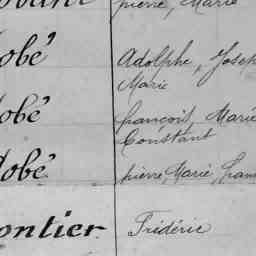 pierre, Marie
obé Adolphe, Joseph
Marie
obé françois, Marie
Constant
obé pierre, Marie, fran
ontier Frédéric